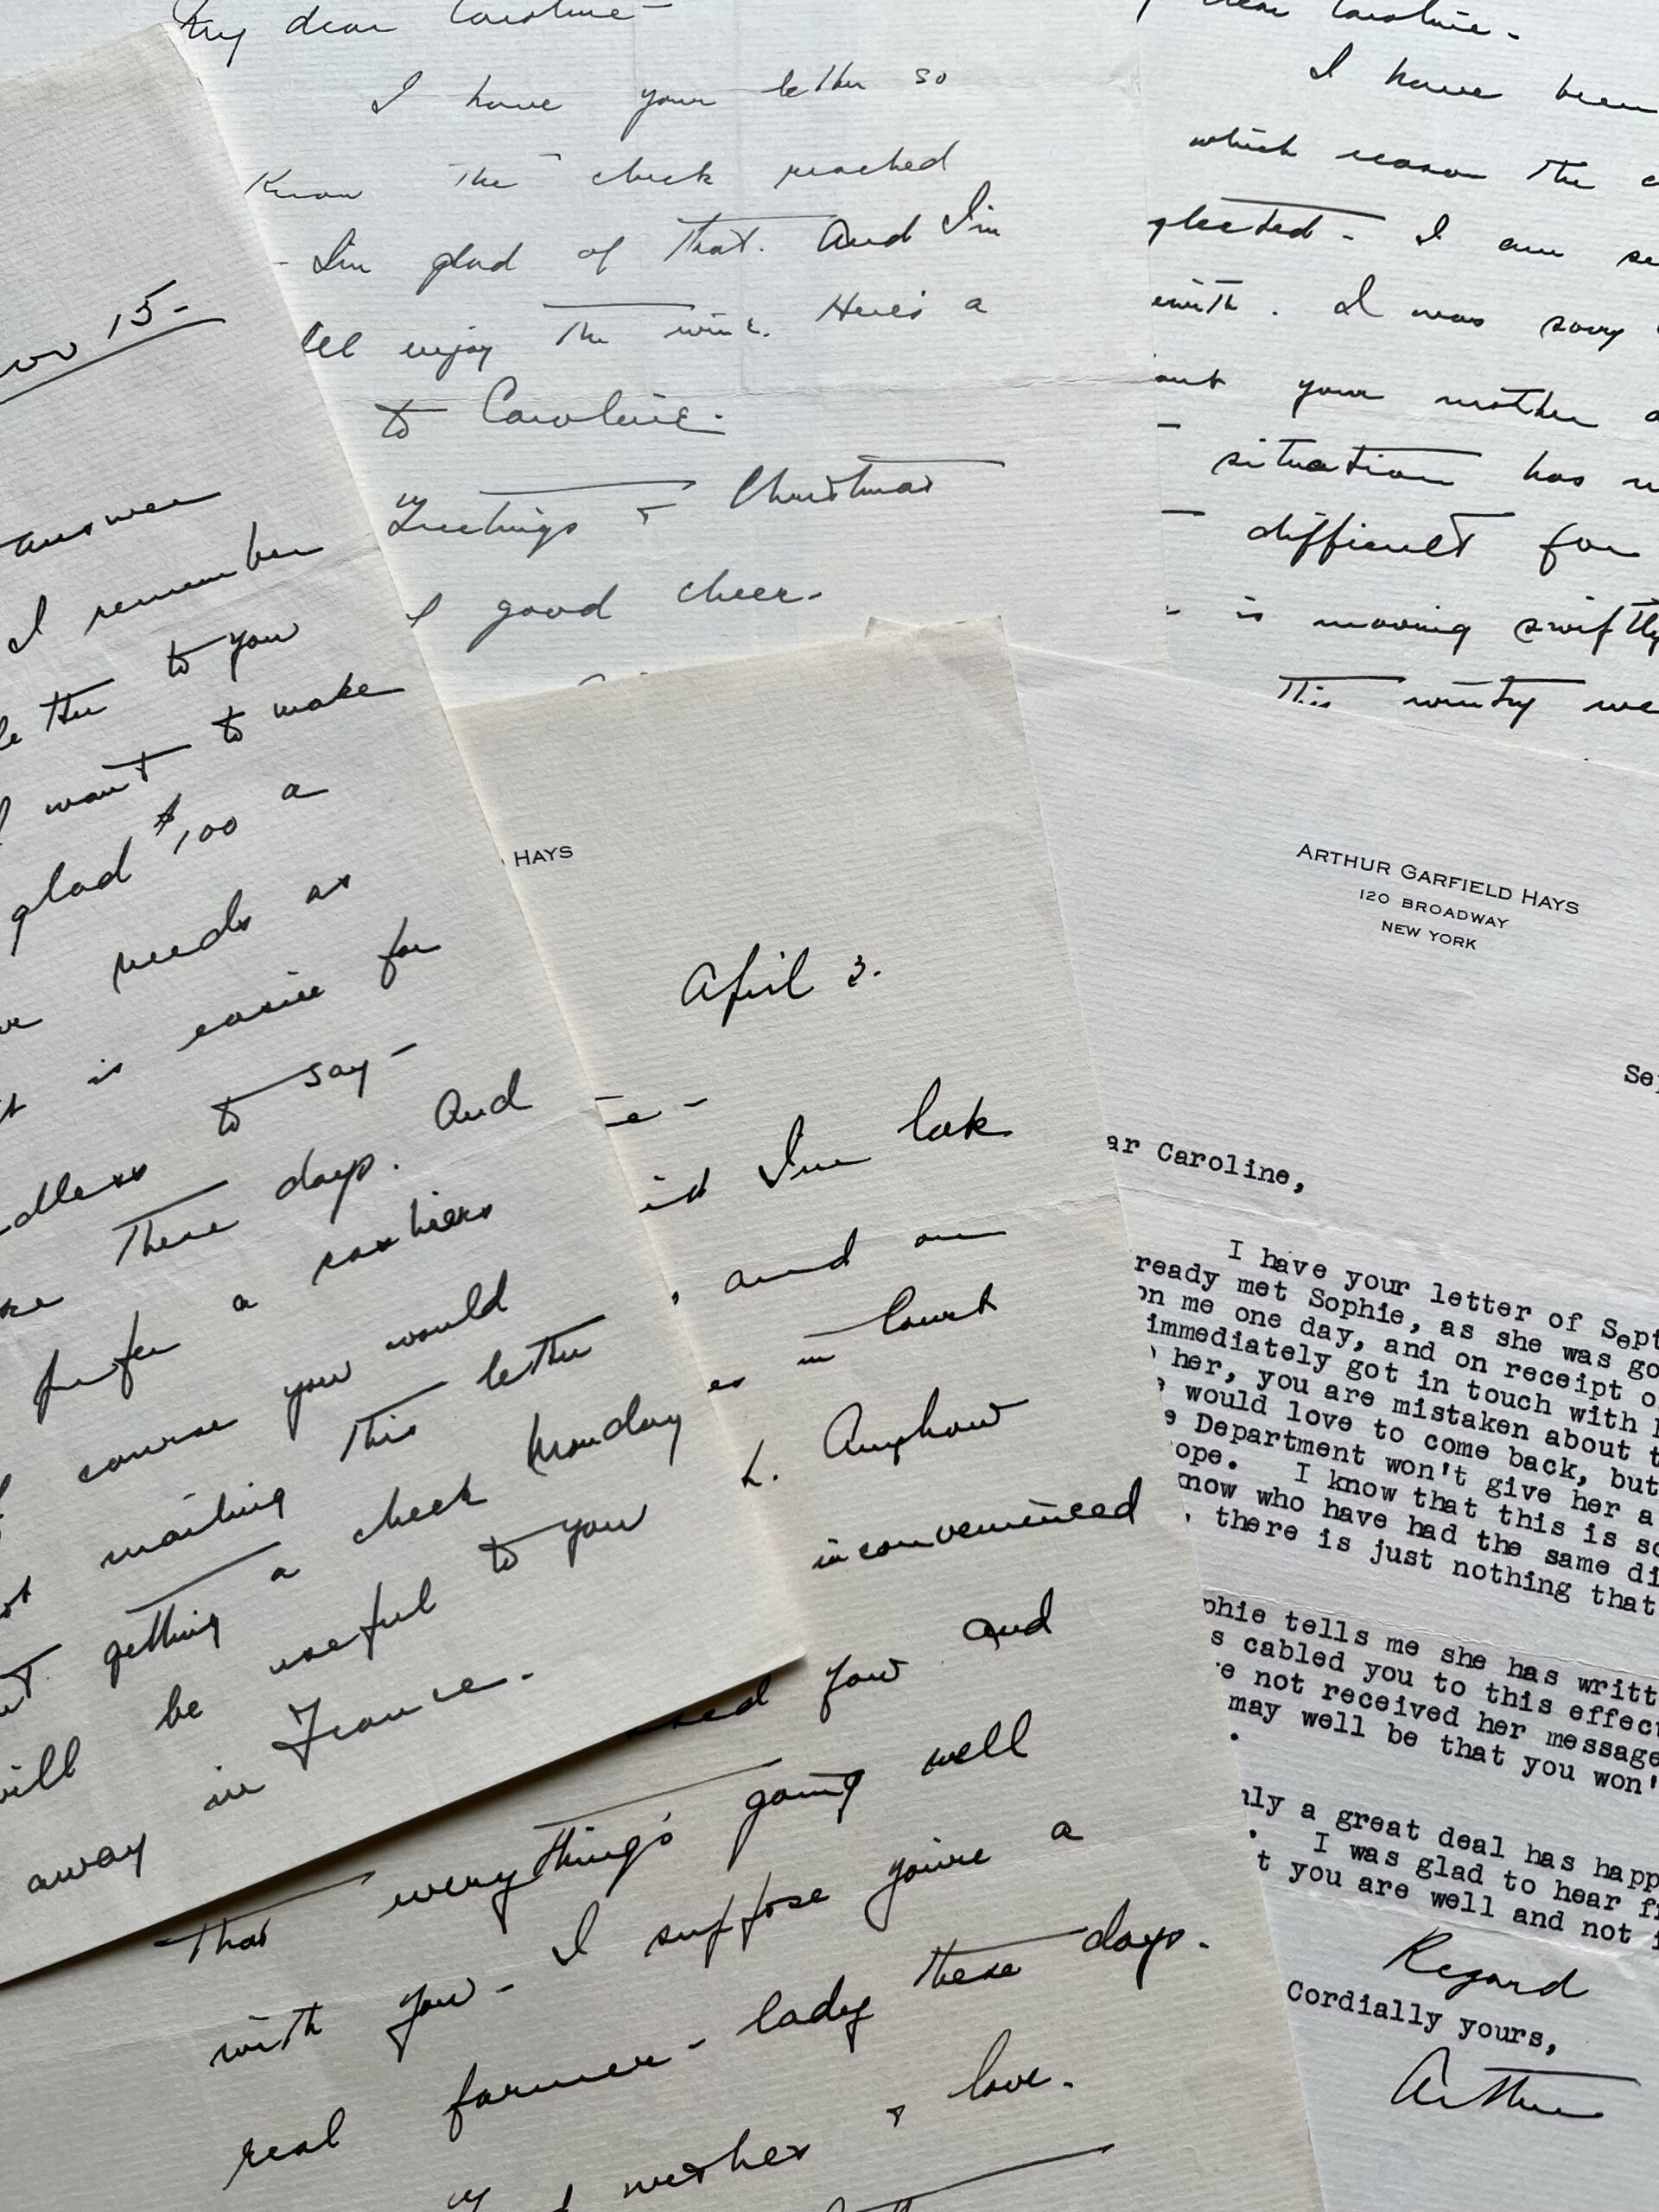 My dear Caroline-
I have your letter so
Know the check reached
- I'm glad of that. And I'm
enjoy the wine. Here's a
to Caroline.
Greetings & Christmas
good cheer.
dear Caroline.
I have been
which reason the
glected. I am
with. I was sorry
your mother
situation has
difficult for
is moving swiftly
This wintry we
Nov 15-
answer
I remember
to you
I want to make
glad $100 a
needs as
is easier for
to say-
these days. And
prefer a sixtiers
course you would
mailing this letter
getting a check Monday
will be useful to you
away in France.
HAYS
April 3.
I'm late
, and am
in Court
. Anyhow
inconvenienced
you and
that everything's going well
with you- I suppose you're a
real farmer-lady these days.
wishes & love.
ARTHUR GARFIELD HAYS
120 BROADWAY
NEW YORK
Se
ar Caroline,
I have your letter of Sept
ready met Sophie, as she was go
on me one day, and on receipt o
immediately got in touch with h
her, you are mistaken about t
e would love to come back, but
e Department won't give her a
ope. I know that this is so
know who have had the same di
, there is just nothing that
phie tells me she has writt
s cabled you to this effect
e not received her message
may well be that you won'
.
nly a great deal has happ
. I was glad to hear fr
t you are well and not i
Regard
Cordially yours,
Arthur